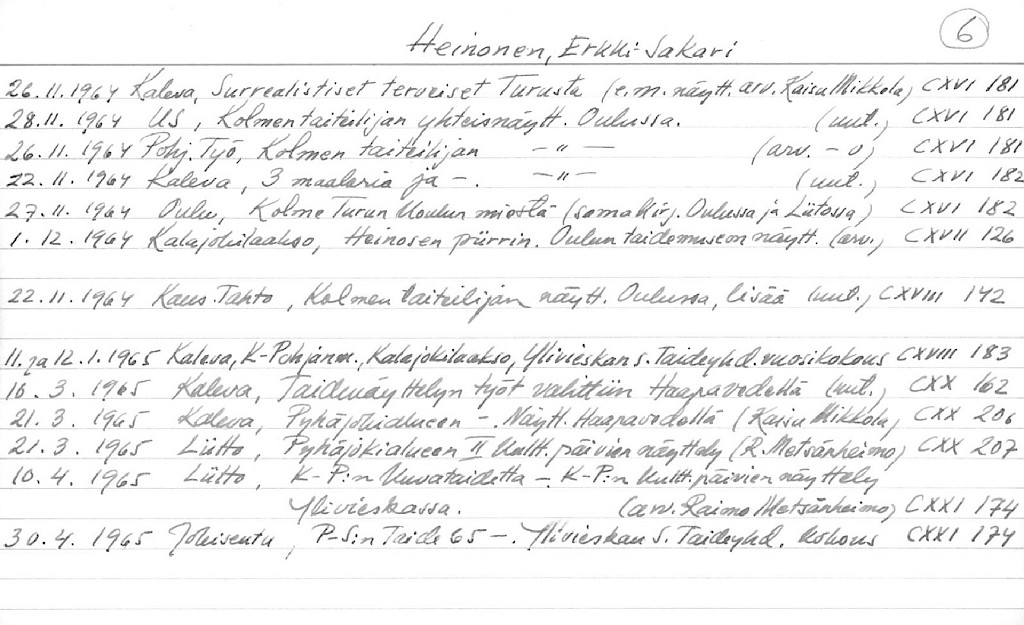 6
Heinonen, Erkki Sakari
26.11.1964 Kaleva, Surrealistiset terveiset Turusta (e.m. näytt. arv. Kaisu Mikkola) CXVI 181
28.11.1964 US, Kolmen taiteilijan yhteisnäytt. Oulussa. (uut.) CXVI 181
26.11.1964 Pohj. Työ, Kolmen taiteilijan -"- (arv. -o) CXVI 181
22.11.1964 Kaleva, 3 maalaria ja -. -"- (uut.) CXVI 182
27.11.1964 Oulu, Kolme Turun koulun miestä (sama kirj. Oulussa ja Liitossa) CXVI 182
1.12.1964 Kalajokilaakso, Heinosen piirrin. Oulun taidemuseon näytt. (arv.) CXVII 126
22.11.1964 Kans. Tahto, Kolmen taiteilijan näytt. Oulussa, lisää (uut.) CXVIII 142
11. ja 12.1.1965 Kaleva, K-Pohjanm., Kalajokilaakso, Ylivieskan s. Taideyhd. vuosikokous CXVIII 183
16.3.1965 Kaleva, Taidenäyttelyn työt valittiin Haapavedellä (uut.) CXX 162
21.3.1965 Kaleva, Pyhäjokialueen -. Näytt. Haapavedellä (Kaisu Mikkola) CXX 206
21.3.1965 Liitto, Pyhäjokialueen II kultt. päivien näyttely (R. Metsänheimo) CXX 207
10.4.1965 Liitto, K-P:n kuvataidetta -. K-P:n kultt. päivien näyttely
Ylivieskassa. (arv. Raimo Metsänheimo) CXXI 174
30.4.1965 Jokiseutu, P-S:n Taide 65 -. Ylivieskan s. Taideyhd. kokous CXXI 174